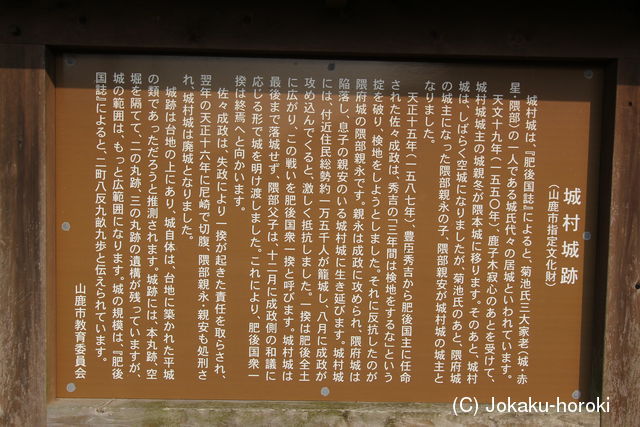 城村城跡
(山鹿市指定文化財)
城村城は、『肥後国誌』によると、菊池氏三大家老(城・赤
星・隈部)の一人である城氏代々の居城といわれています。
天文十九年(一五五〇年)、鹿子木寂心のあとを受けて、
城村城城主の城親冬が隈本城に移ります。そのあと、城村
城は、しばらく空城になりましたが、菊池氏のあと、隈府城
の城主になった隈部親永の子、隈部親安が城村城の城主と
なりました。
天正十五年(一五八七年)、豊臣秀吉から肥後国主に任命
された佐々成政は、秀吉の「三年間は検地をするな」という
掟を破り、検地をしようとしました。それに反抗したのが
隈府城の隈部親永です。親永は成政に攻められ、隈府城は
陥落し、息子の親安のいる城村城に生き延びます。城村城
には、付近住民総勢約一万五千人が籠城し、八月に成政が
攻め込んでくると、激しく抵抗しました。一揆は肥後全土
に広がり、この戦いを肥後国衆一揆と呼びます。城村城は
最後まで落城せず、隈部父子は、十二月に成政側の和議に
応じる形で城を明け渡しました。これにより、肥後国衆一
揆は終焉へと向かいます。
佐々成政は、失政により一揆が起きた責任を取らされ、
翌年の天正十六年に尼崎で切腹、隈部親永、親安も処刑さ
れ、城村城は廃城となりました。
城跡は台地の上にあり、城自体は、台地に築かれた平城
の類であっただろうと推測されます。城跡には、本丸跡、空
堀を隔てて、二の丸跡、三の丸跡の遺構が残っていますが、
城の範囲は、もっと広範囲になります。城の規模は、『肥後
国誌』によると、二町八反九畝九歩と伝えられています。
山鹿市教育委員会
(C) Jokaku-horoki